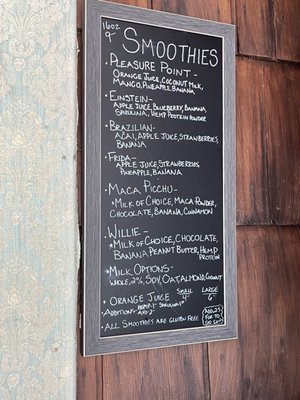 16oz
9-
SMOOTHIES
• PLEASURE POINT -
ORANGE JUICE, COCONUT MILK,
MANGO, PINEAPPLE, BANANA
• EINSTEIN -
APPLE JUICE, BLUEBERRY, BANANA,
SPIRULINA, HEMP PROTEIN POWDER
• BRAZILIAN -
ACAI, APPLE JUICE, STRAWBERRIES,
BANANA
• FRIDA -
APPLE JUICE, STRAWBERRIES
PINEAPPLE, BANANA
• MACA PICCHU -
• MILK OF CHOICE, MACA POWDER,
CHOCOLATE, BANANA, CINNAMON
• WILLIE -
• MILK OF CHOICE, CHOCOLATE,
BANANA, PEANUT BUTTER, HEMP
PROTEIN
• MILK OPTIONS -
WHOLE, 2%, SOY, OAT, ALMOND, COCONUT
SMALL LARGE
• ORANGE JUICE 4- 6-
ADDITIONS -
• ALL SMOOTHIES ARE GLUTEN FREE
ADD .25
FOR TO
GO CUP